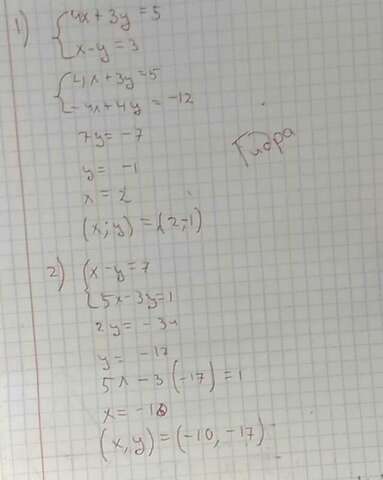 1) { 4x + 3y = 5
x - y = 3
{ 4x + 3y = 5
-4x + 4y = -12
7y = -7
y = -1
x = 2
(x; y) = (2; -1)
Гидра
2) { x - y = 7
5x - 3y = 1
2y = -34
y = -17
5x - 3(-17) = 1
x = -10
(x, y) = (-10, -17)